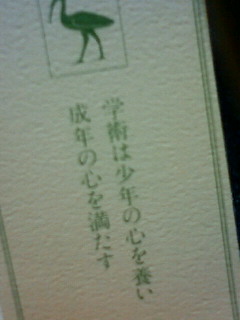 学術は少年の心を養い
成年の心を満たす